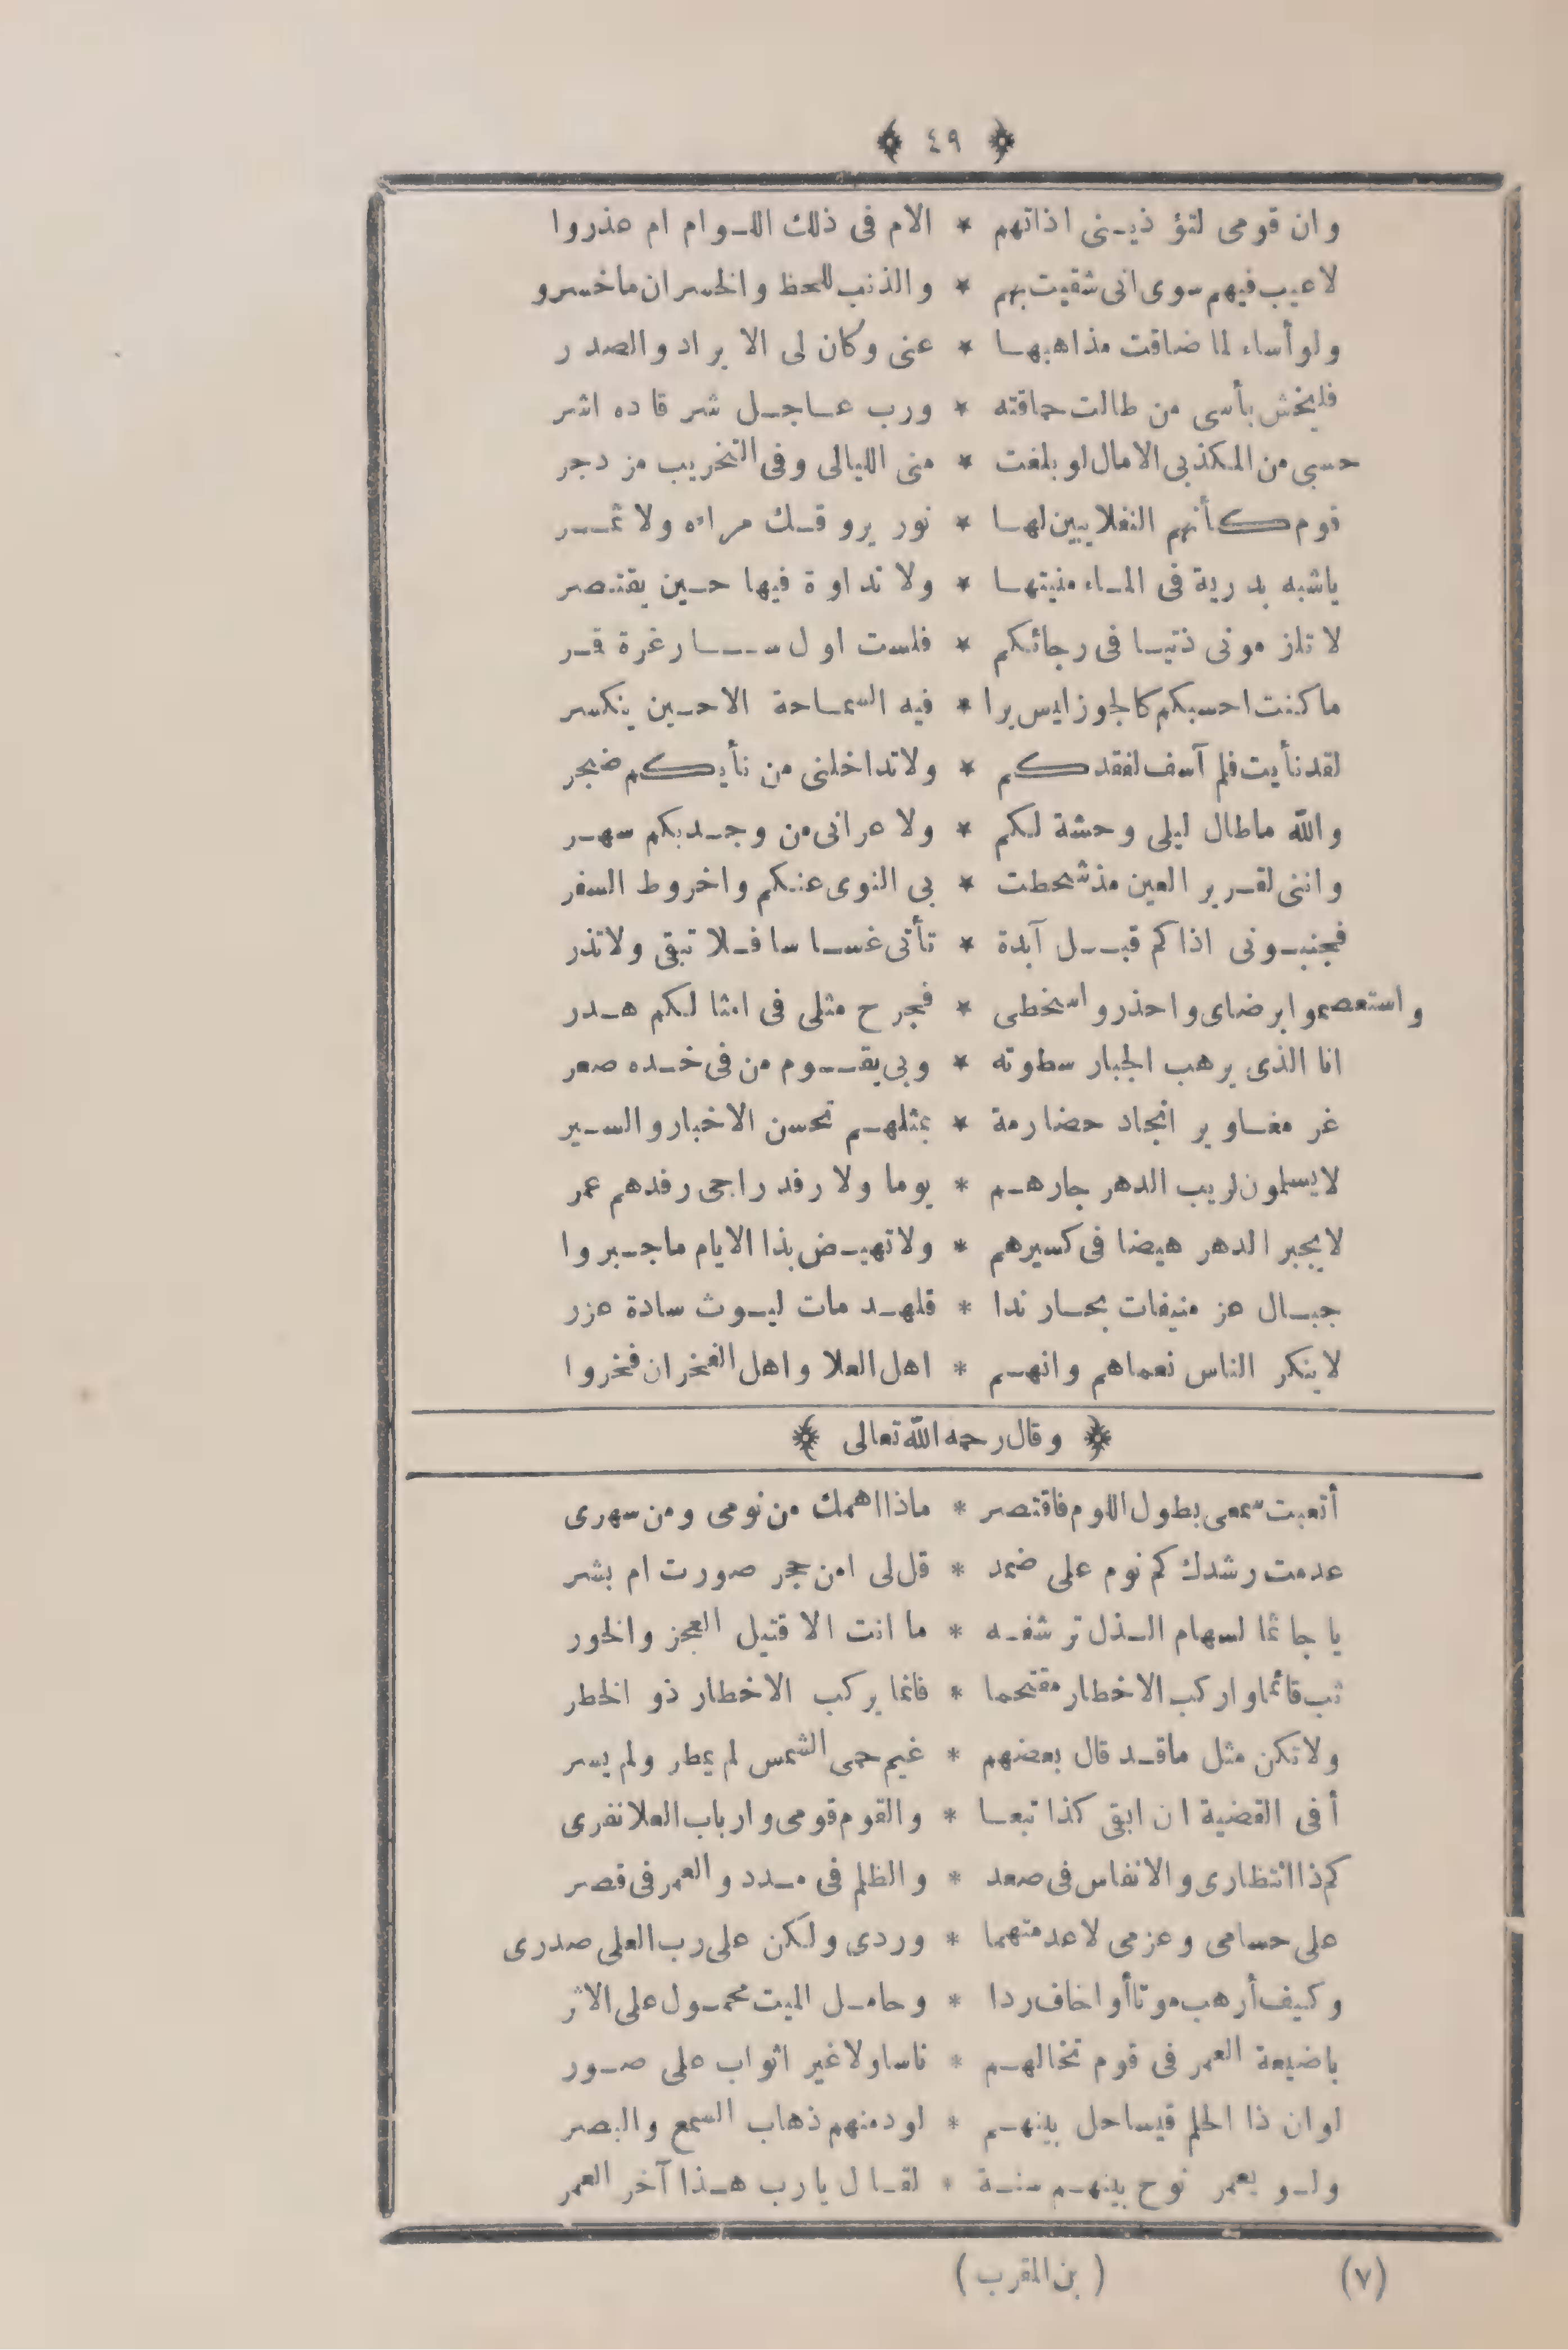 ﴿ ٤٩ ﴾
وان قومى لتؤذينى اذاتهم * الام فى ذلك اللوام ام عذروا
لاعيب فيهم سوى انى شقيت بهم * والذنب للحظ والخسران ماخسرو
ولو أساء لما ضاقت مذاهبها * عنى وكان لى الايراد والصدر
فليخش بأسى من طالت حماقته * ورب عاجل شر قاده اشر
حسبى من المكذبى الامال لو بلغت * منى الليالى وفى التخريب مزدجر
قوم كأنهم الدفلا يبين لها * نور يروقك مراه ولا ثمر
ياشبه بدرية فى الماء منيتها * ولا نداوة فيها حين يقتصر
لا تلزمونى ذنبا فى رجائكم * فلست اول سار غرة قر
ماكنت احسبكم كالجوز ليس يرا * فيه السماحة الاحين ينكسر
لقد نأيت فلم آسف لفقدكم * ولا تداخلنى من نأيكم ضجر
والله ماطال ليلى وحشة لكم * ولا عرانى من وجد بكم سهر
واننى لقرير العين مذ شحطت * بى النوى عنكم واخروط السفر
فجنبونى اذاكم قبل آبدة * تأتى غساسا فلا تبقى ولا تذر
واستعصموا برضاى واحذروا سخطى * فجرح مثلى فى امثالكم هدر
انا الذى يرهب الجبار سطوته * وبى يقوم من فى خده صعر
غر مغاوير انجاد حضارمة * بمثلهم تحسن الاخبار والسير
لايسلمون لريب الدهر جارهم * يوما ولا رفد راجى رفدهم غمر
لايجبر الدهر هيضا فى كسيرهم * ولا تهيض بذا الايام ماجبروا
جبال عز منيفات بحار ندا * قلهدمات ليوث سادة عزر
لاينكر الناس نعماهم وانهم * اهل العلا واهل الفخر ان فخروا
﴿ وقال رحمه الله تعالى ﴾
أتعبت سمعى بطول اللوم فاقتصر * ماذا اهمك من نومى ومن سهرى
عدمت رشدك كم نوم على ضمد * قل لى امن حجر صورت ام بشر
يا جاثما لسهام الذل ترشفه * ما انت الا قتيل العجز والخور
ثب قائما واركب الاخطار مقتحما * فانما يركب الاخطار ذو الخطر
ولا تكن مثل ماقد قال بعضهم * غيم حمى الشمس لم يمطر ولم يسر
أفى القضية ان ابقى كذا تبعا * والقوم قومى وارباب العلا نفرى
كم ذا انتظارى والانفاس فى صعد * والظلم فى مدد والعمر فى قصر
على حسامى وعزمى لاعدمتهما * وردى ولكن على رب العلى صدرى
وكيف أرهب موتا أو اخاف ردا * وحامل الميت محمول على الاثر
ياضيعة العمر فى قوم تخالهم * ناسا ولا غير اثواب على صور
لو ان ذا الحلم قيسا حل بينهم * لود منهم ذهاب السمع والبصر
ولو يعمر نوح بينهم سنة * لقال يارب هذا آخر العمر
(٧) (بن المقرب)